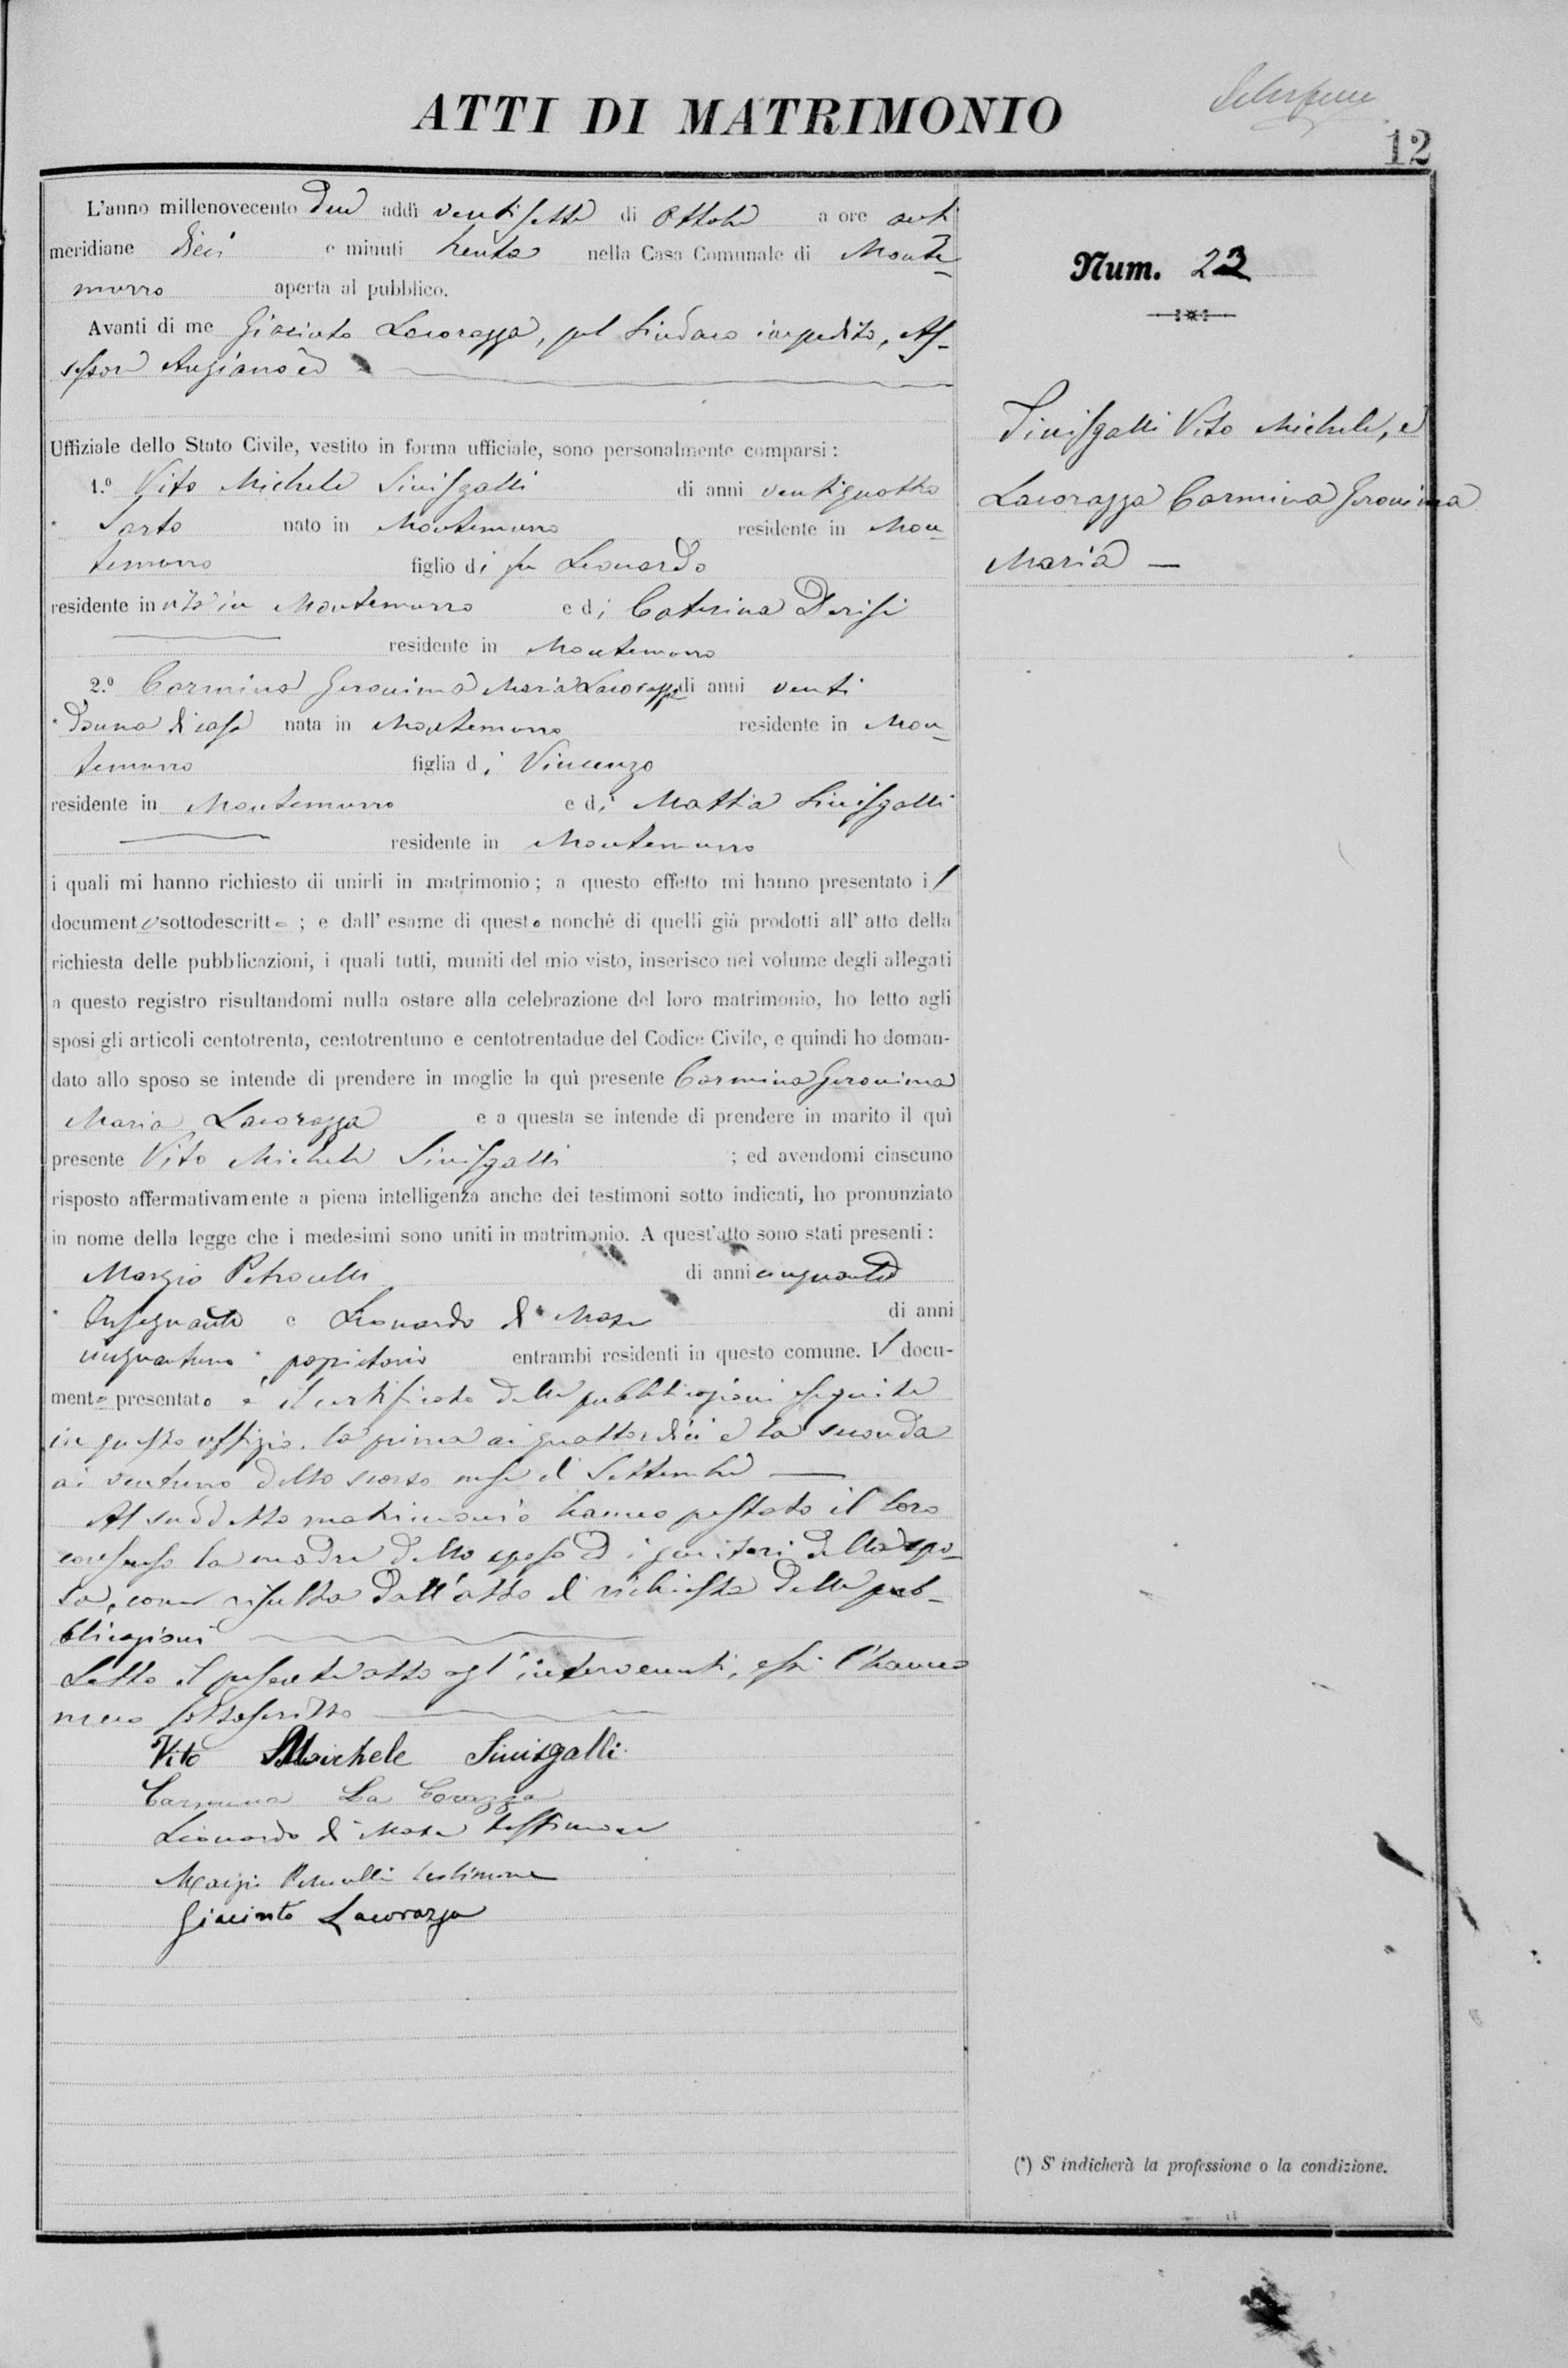 ATTI DI MATRIMONIO
12
L'anno millenovecento due addì ventisette di Ottobre a ore anti
meridiane dieci e minuti trenta nella Casa Comunale di Monte-
murro aperta al pubblico.
Avanti di me Giacinto Lacorazza, pel Sindaco impedito, As-
sessore Anziano ed
Uffiziale dello Stato Civile, vestito in forma ufficiale, sono personalmente comparsi :
1.º Vito Michele Sinisgalli di anni ventiquattro
* Sarto nato in Montemurro residente in Mon-
temurro figlio di fu Leonardo
residente in vita in Montemurro e di Caterina Derisi
residente in Montemurro
2.º Carmina Geronima Maria Lacorazza di anni venti
* Donna di casa nata in Montemurro residente in Mon-
temurro figlia di Vincenzo
residente in Montemurro e di Mattia Sinisgalli
residente in Montemurro
i quali mi hanno richiesto di unirli in matrimonio ; a questo effetto mi hanno presentato il
documento sottodescritto ; e dall' esame di questo nonchè di quelli già prodotti all' atto della
richiesta delle pubblicazioni, i quali tutti, muniti del mio visto, inserisco nel volume degli allegati
a questo registro risultandomi nulla ostare alla celebrazione del loro matrimonio, ho letto agli
sposi gli articoli centotrenta, centotrentuno e centotrentadue del Codice Civile, e quindi ho doman-
dato allo sposo se intende di prendere in moglie la quì presente Carmina Geronima
Maria Lacorazza e a questa se intende di prendere in marito il quì
presente Vito Michele Sinisgalli ; ed avendomi ciascuno
risposto affermativamente a piena intelligenza anche dei testimoni sotto indicati, ho pronunziato
in nome della legge che i medesimi sono uniti in matrimonio. A quest'atto sono stati presenti :
Marzio Petrocelli di anni cinquanta
* Insegnante e Leonardo di Mase di anni
cinquantuno * proprietario entrambi residenti in questo comune. Il docu-
mento presentato è il certificato delle pubblicazioni eseguite
in questo uffizio, la prima ai quattordici e la seconda
ai ventuno dello scorso mese di Settembre
Al suddetto matrimonio hanno prestato il loro
consenso la madre dello sposo ed i genitori della spo-
sa, come risulta dall'atto di richiesta delle pub-
blicazioni
Letto il presente atto agl'intervenuti, essi l'hanno
meco sottoscritto
Vito Michele Sinisgalli
Carmina La Corazza
Leonardo di Mase testimone
Marzio Petrocelli testimone
Giacinto Lacorazza
Num. 23
Sinisgalli Vito Michele, e
Lacorazza Carmina Geronima
Maria
(*) S' indicherà la professione o la condizione.